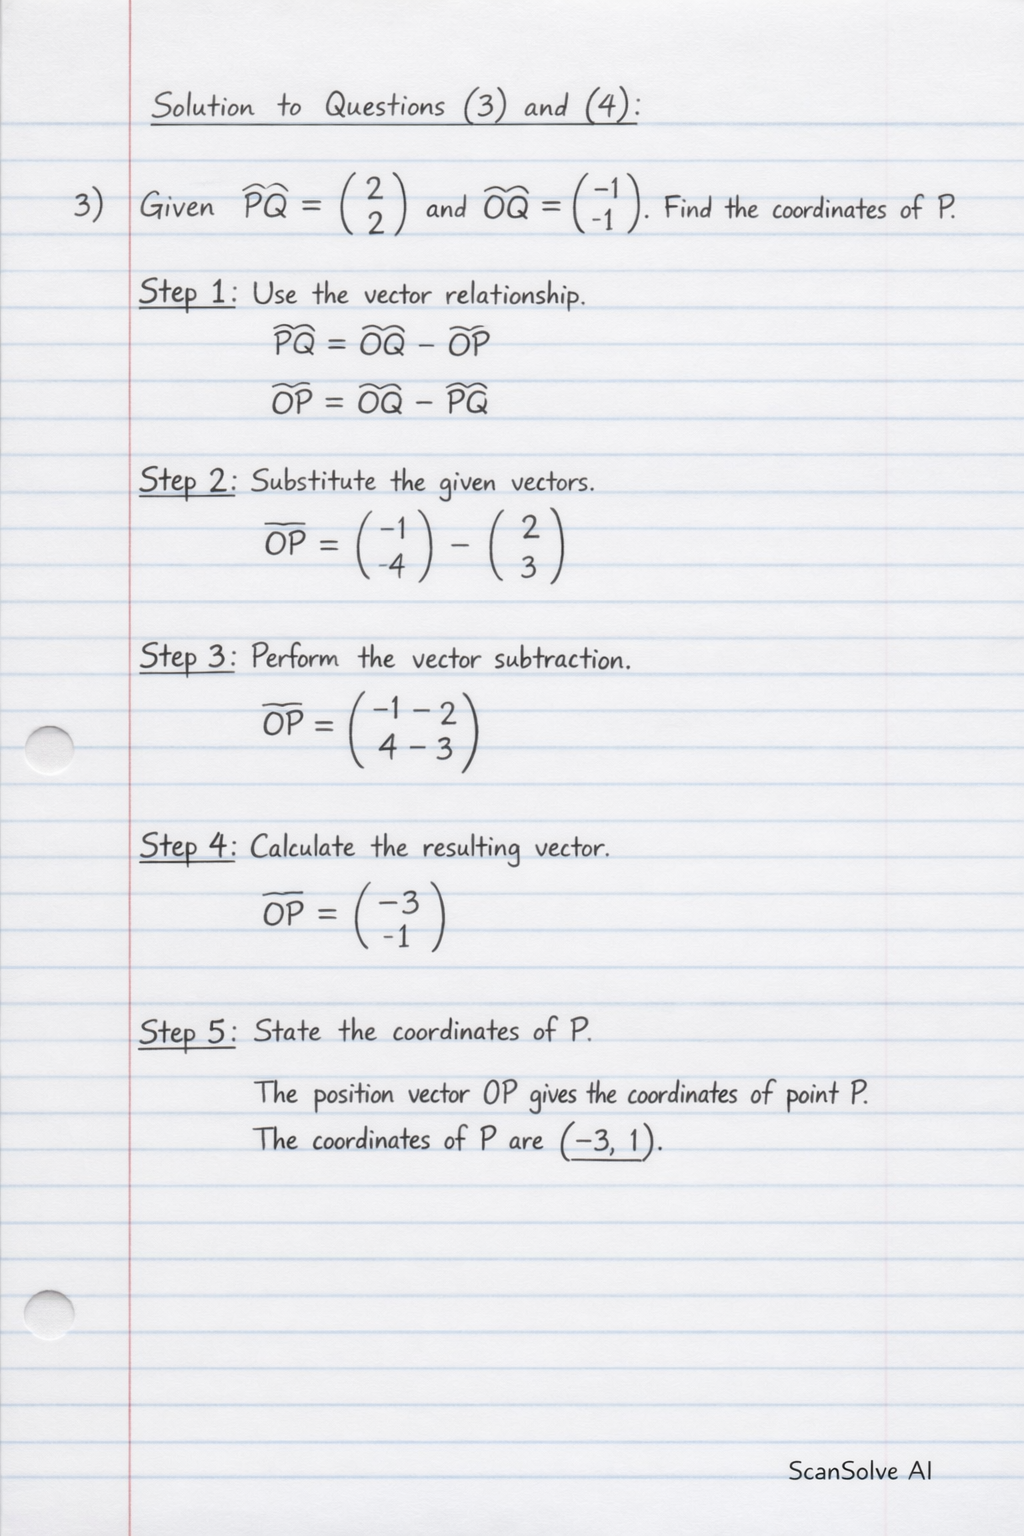 Solution to Questions (3) and (4):
3) Given PQ = (2 2) and OQ = (−1 -1). Find the coordinates of P.
Step 1: Use the vector relationship.
PQ = OQ − OP
OP = OQ − PQ
Step 2: Substitute the given vectors.
OP = (−1 -4) − (2 3)
Step 3: Perform the vector subtraction.
OP = (−1 − 2 4 − 3)
Step 4: Calculate the resulting vector.
OP = (−3 -1)
Step 5: State the coordinates of P.
The position vector OP gives the coordinates of point P.
The coordinates of P are (−3, 1).
ScanSolve AI